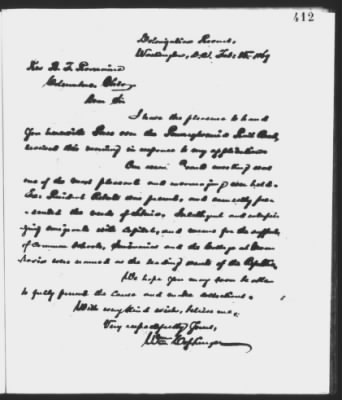 412
Colonization Rooms,
Washington, D.C. Feb. 8th 1869
Rev. B. F.
Columbus, Ohio
Dear Sir
I have the pleasure to hand
you herewith Pass over the Pennsylvania Rail Road,
received this morning in response to my application.
Our Annual meeting was
one of the most pleasant and encouraging ever held.
Ex. President Roberts was present, and earnestly pre-
sented the wants of Liberia. Intelligent and enterpri-
zing emigrants with capital, and means for the support
of Common Schools, Seminaries and the College at Mon-
rovia were named as the leading wants of the Republic.
We hope you may soon be able
to fully present the cause and make collections.
With very kind wishes, believe me,
Very respectfully Yours,
Wm Coppinger